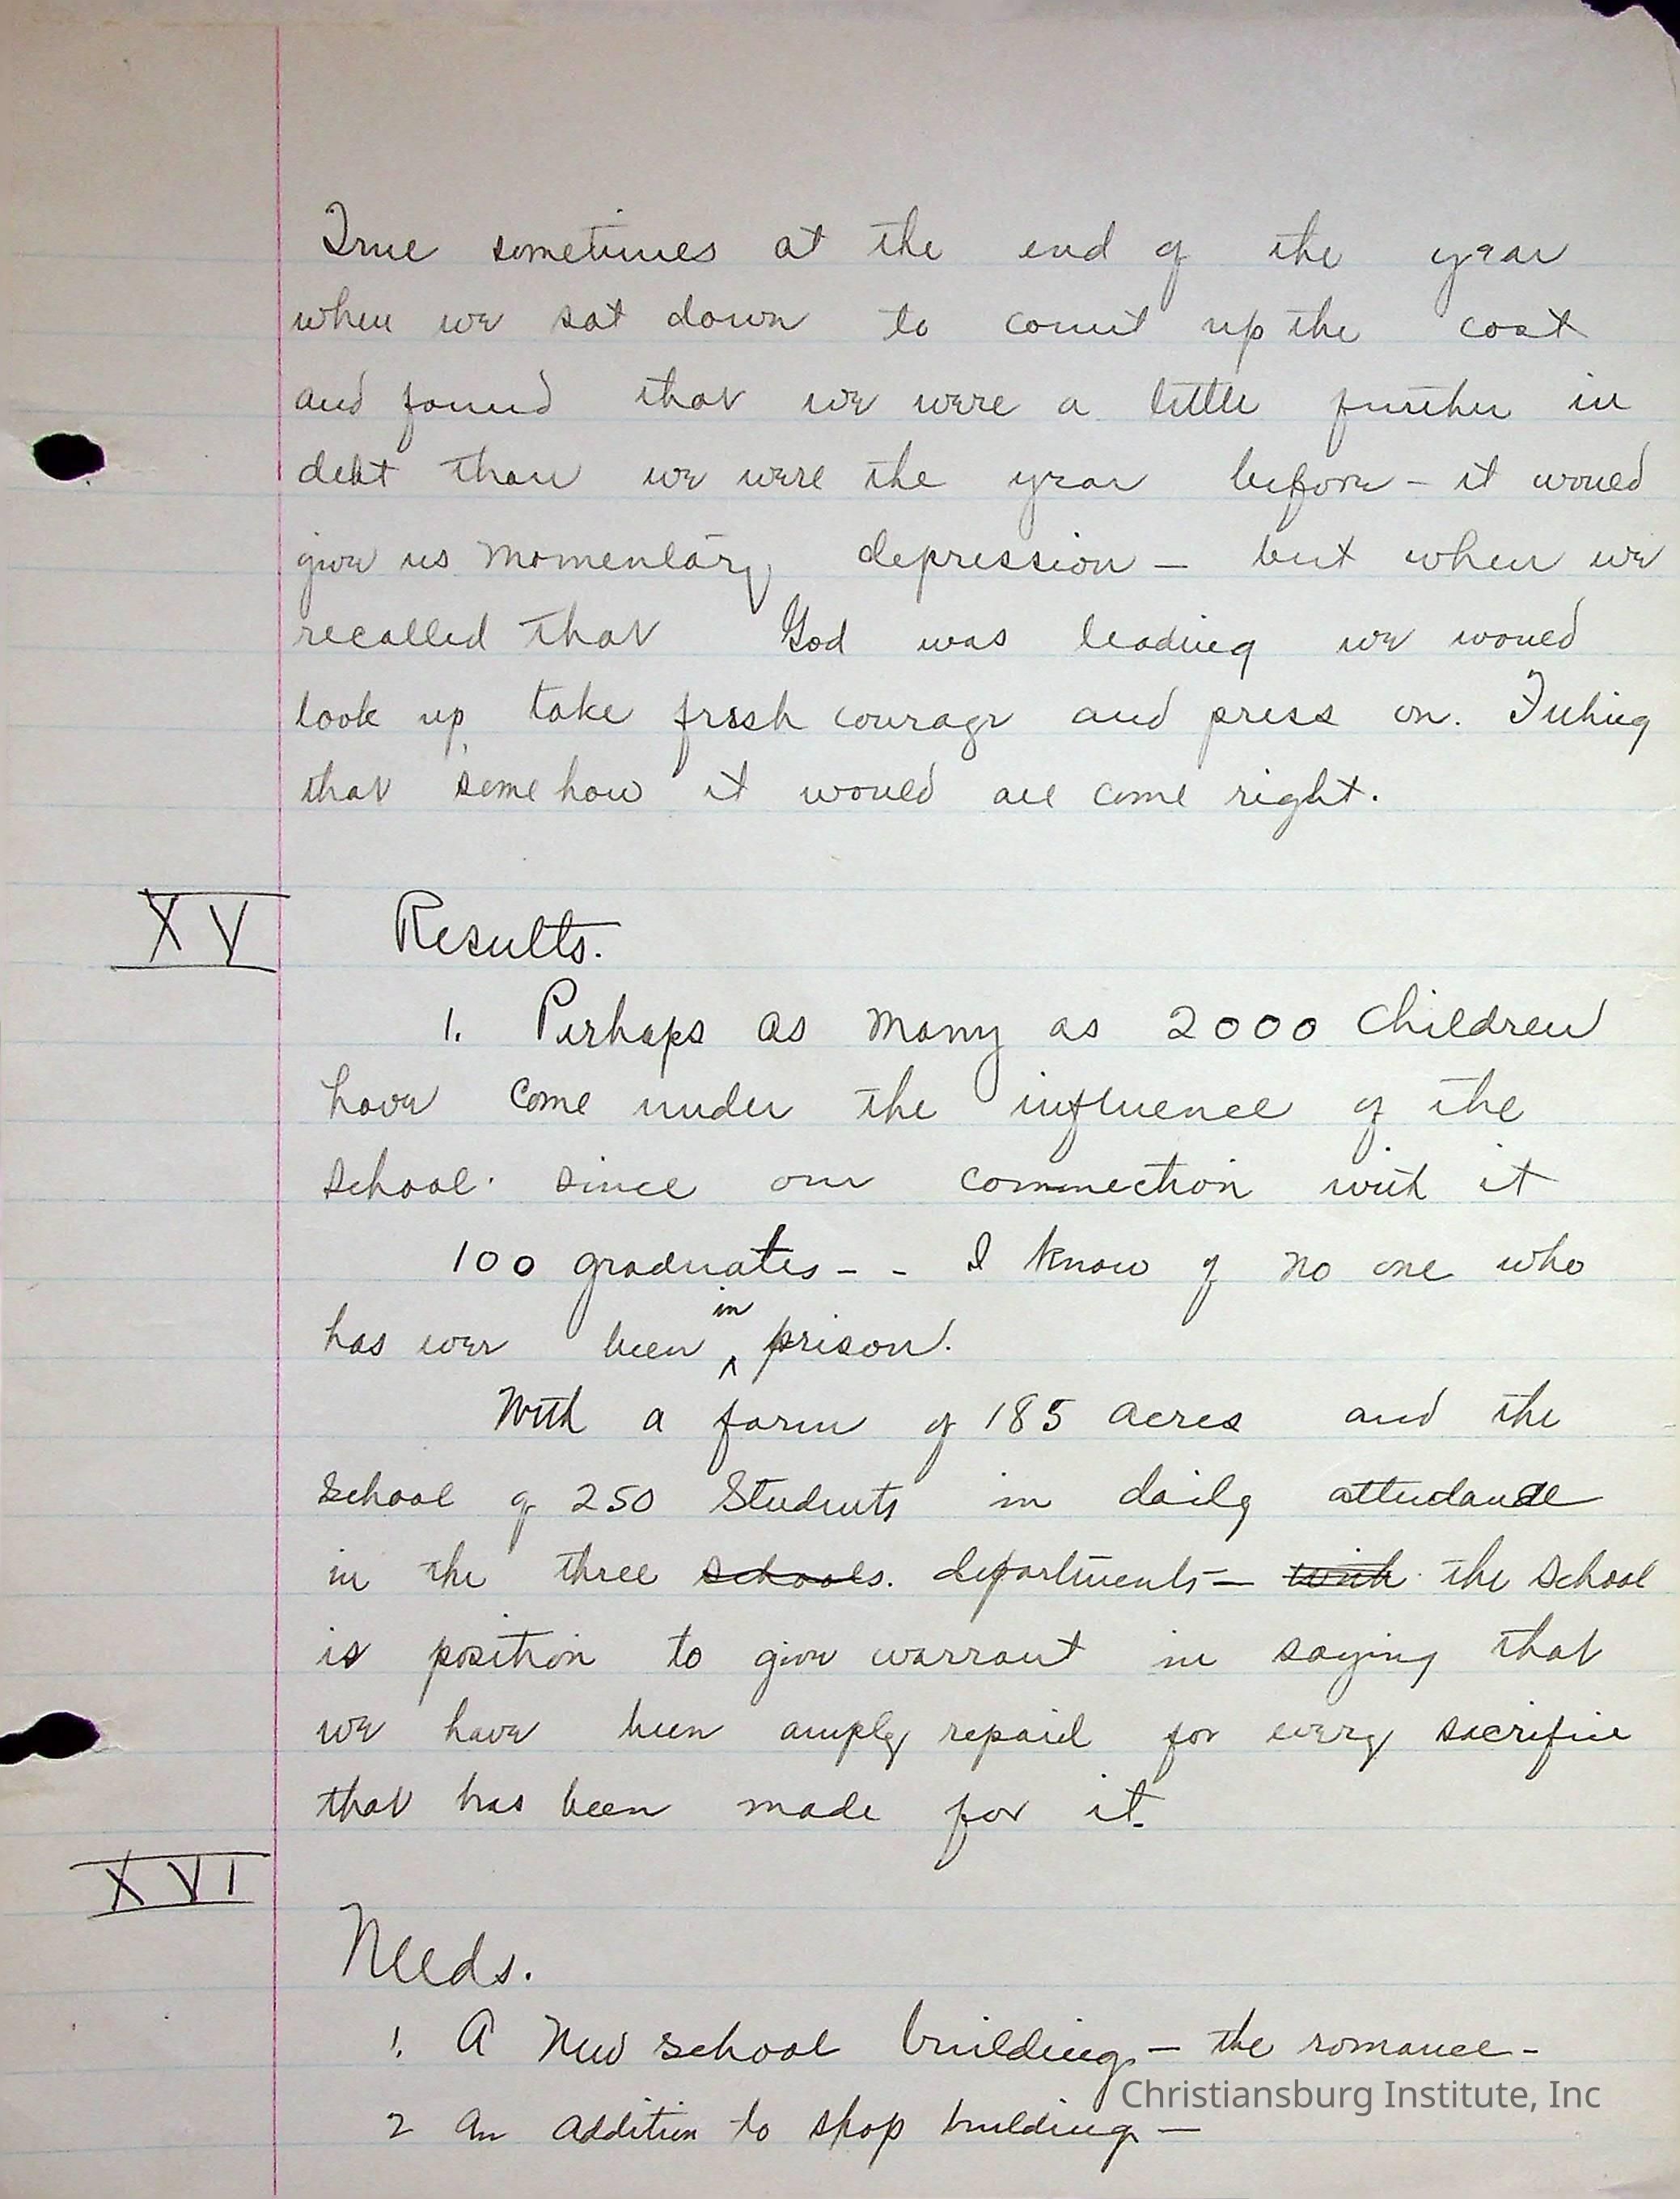 True sometimes at the end of the year
when we sat down to count up the cost
and found that we were a little further in
debt than we were the year before - it would
give us momentary depression - but when we
recalled that God was leading we would
look up, take fresh courage and press on. Feeling
that somehow it would all come right.
XV Results.
1. Perhaps as many as 2000 children
have come under the influence of the
school. since our connection with it
100 graduates - - I know of no one who
has ever been in prison.
With a farm of 185 acres and the
school of 250 Students in daily attendance
in the three schools. departments - with the school
is position to give warrant in saying that
we have been amply repaid for every sacrifice
that has been made for it.
XVI
Needs.
1. A New school building - the romance -
2 An addition to shop building -
Christiansburg Institute, Inc